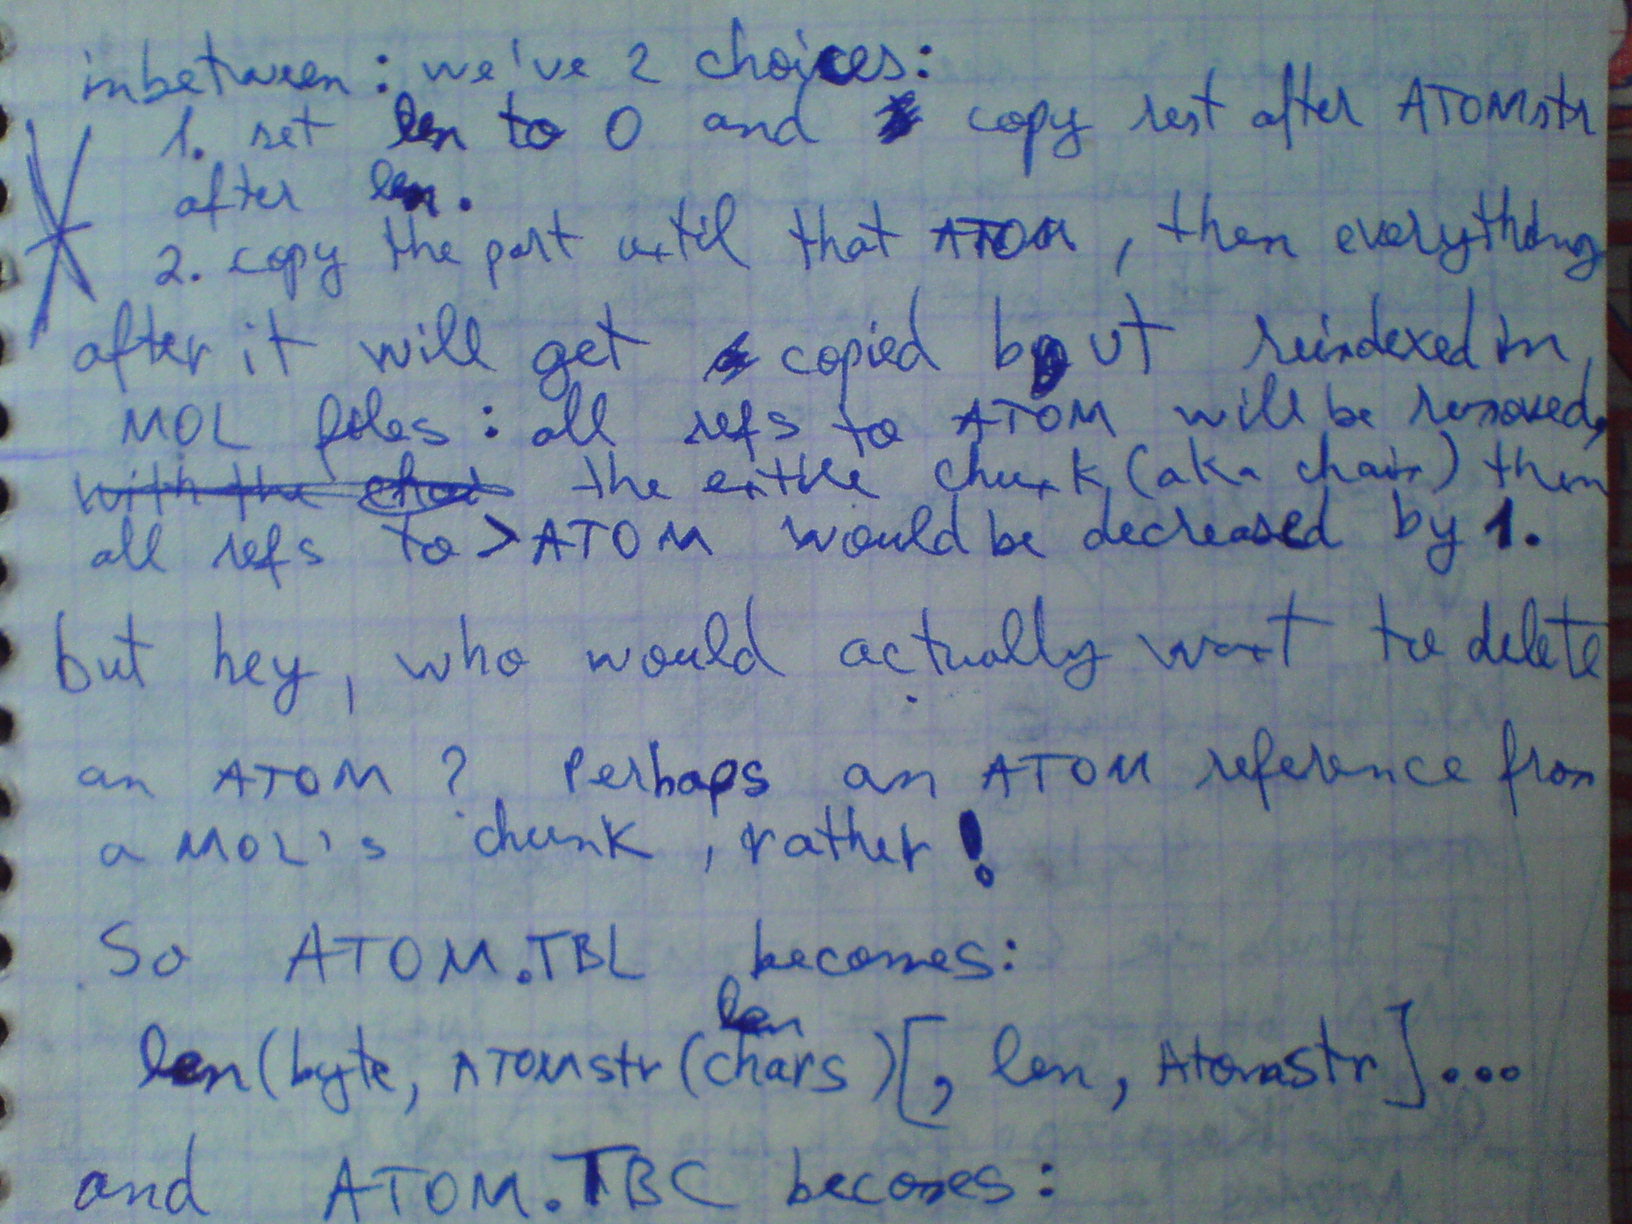 inbetween: we've 2 choices:
1. set len to 0 and copy rest after ATOMstr
after len.
2. copy the part until that ATOM, then everything
after it will get copied but reindexed in
MOL files: all refs to ATOM will be removed,
with the the entire chunk (aka chain) then
all refs to >ATOM would be decreased by 1.
but hey, who would actually want to delete
an ATOM? Perhaps an ATOM reference from
a MOL's chunk, rather!
So ATOM.TBL becomes:
len
len(byte, ATOMstr(chars)[, len, Atomstr]...
and ATOM.TBC becomes: